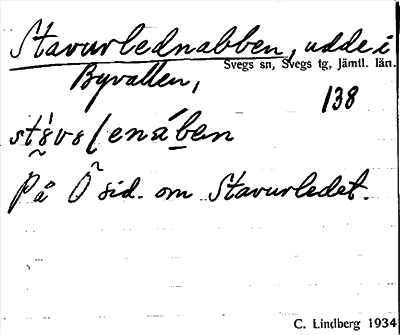 Stavurlednabben, udde i
Svegs sn, Svegs tg, Jämtl. län.
Byvallen,
138
På Ö sid. om Stavurledet.
C. Lindberg 1934